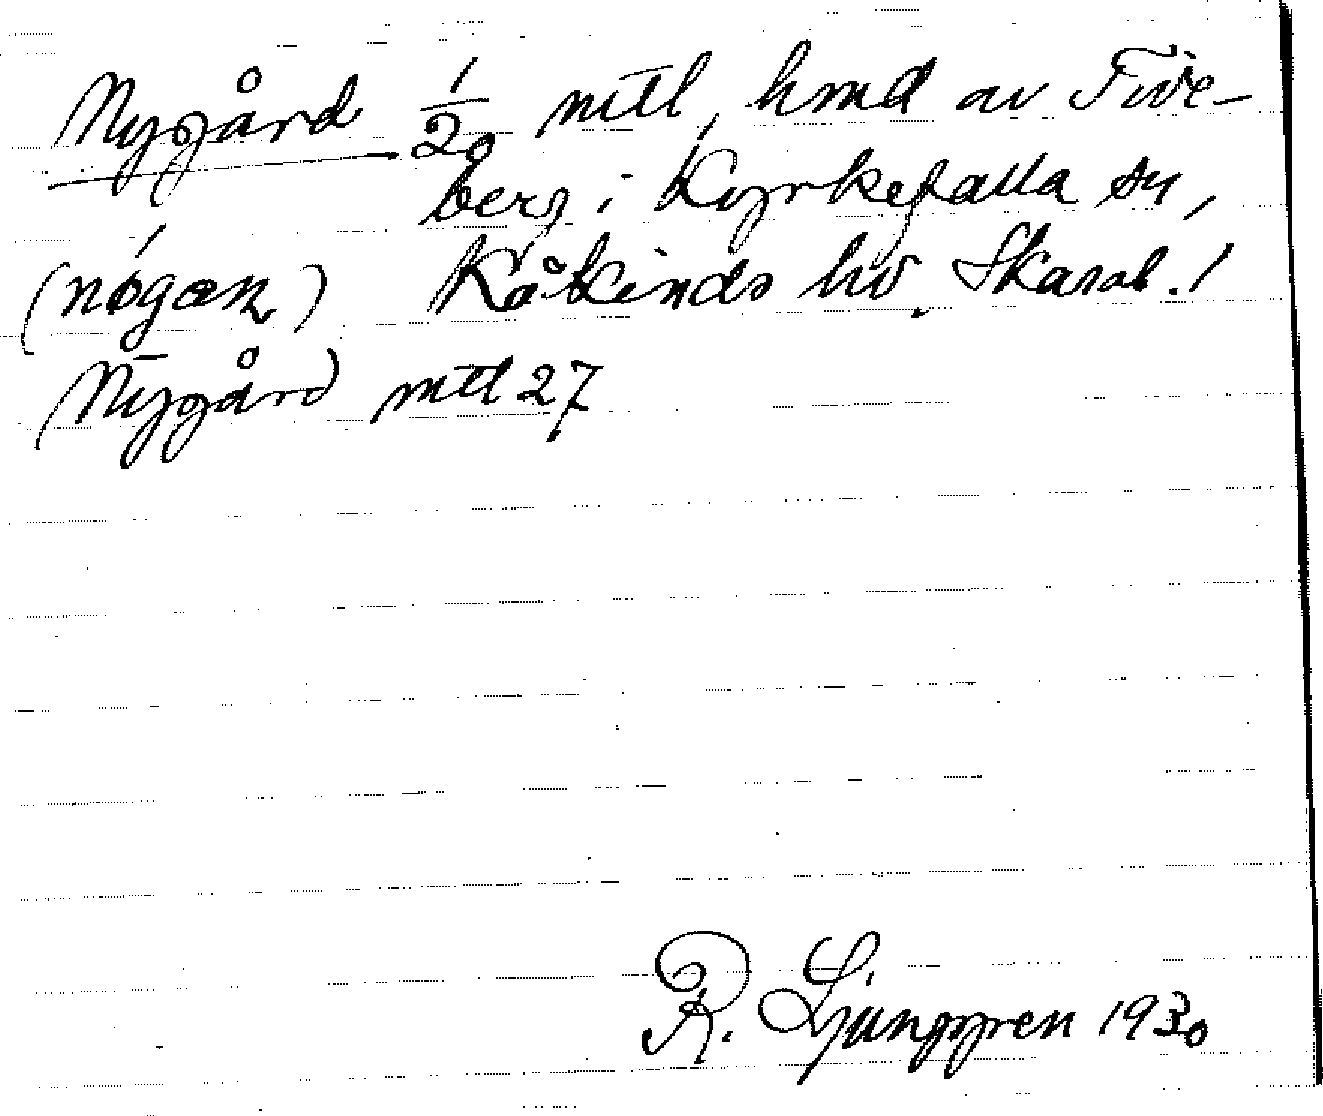 Nygård 1/20 mtl, hmd av Tive-
berg i Kyrkefalla sn,
(nøgæṇ) Kåkinds hd. Skarab.!
Nygård mtl 27
R. Ljunggren 1930